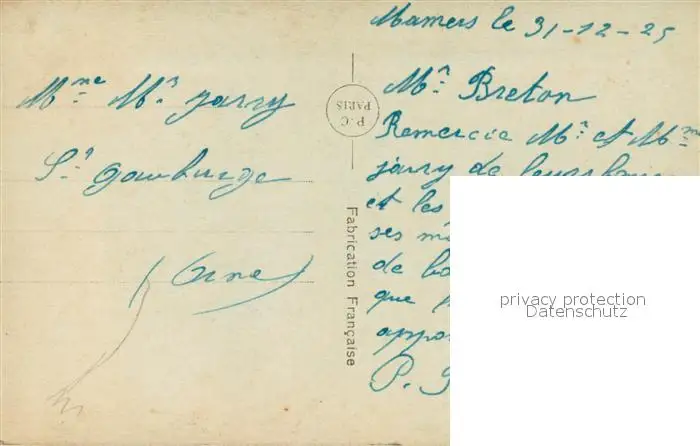 Mamers le 31-12-25
Mme Mr Jarry
St Gauburge
(Orne)
P.C
PARIS
Fabrication Française
Mr Breton
Remercie Mr et Mme
Jarry de leurs
et les
ses
de
que
P.
privacy protection
Datenschutz